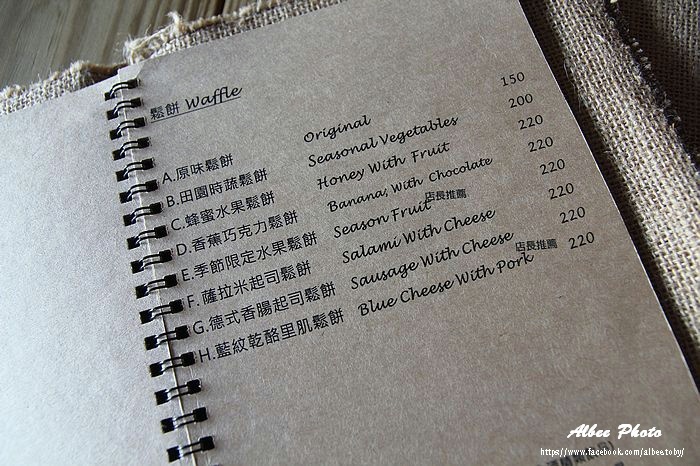 鬆餅 Waffle
A.原味鬆餅 Original 150
B.田園時蔬鬆餅 Seasonal Vegetables 200
C.蜂蜜水果鬆餅 Honey With Fruit 220
D.香蕉巧克力鬆餅 Banana, With Chocolate 220
E.季節限定水果鬆餅 Season Fruit 店長推薦 220
F.薩拉米起司鬆餅 Salami With Cheese 220
G.德式香腸起司鬆餅 Sausage With Cheese 220
H.藍紋乾酪里肌鬆餅 Blue Cheese With Pork 店長推薦 220
Albee Photo
https://www.facebook.com/albee.toby/